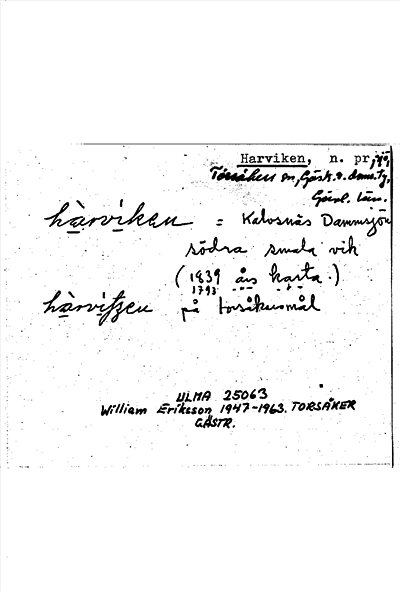 Harviken, n. pr., sjö,
Torsåker sn, Gästr. ö. doms.,
Gävl. län.
hàrviken = Kalvsnäs Dammsjön
södra smala vik
(1839 års karta.)
1793
hàrvitzen på torsåkersmål
ULMA 25063
William Eriksson 1947-1963. TORSÅKER
GÄSTR.